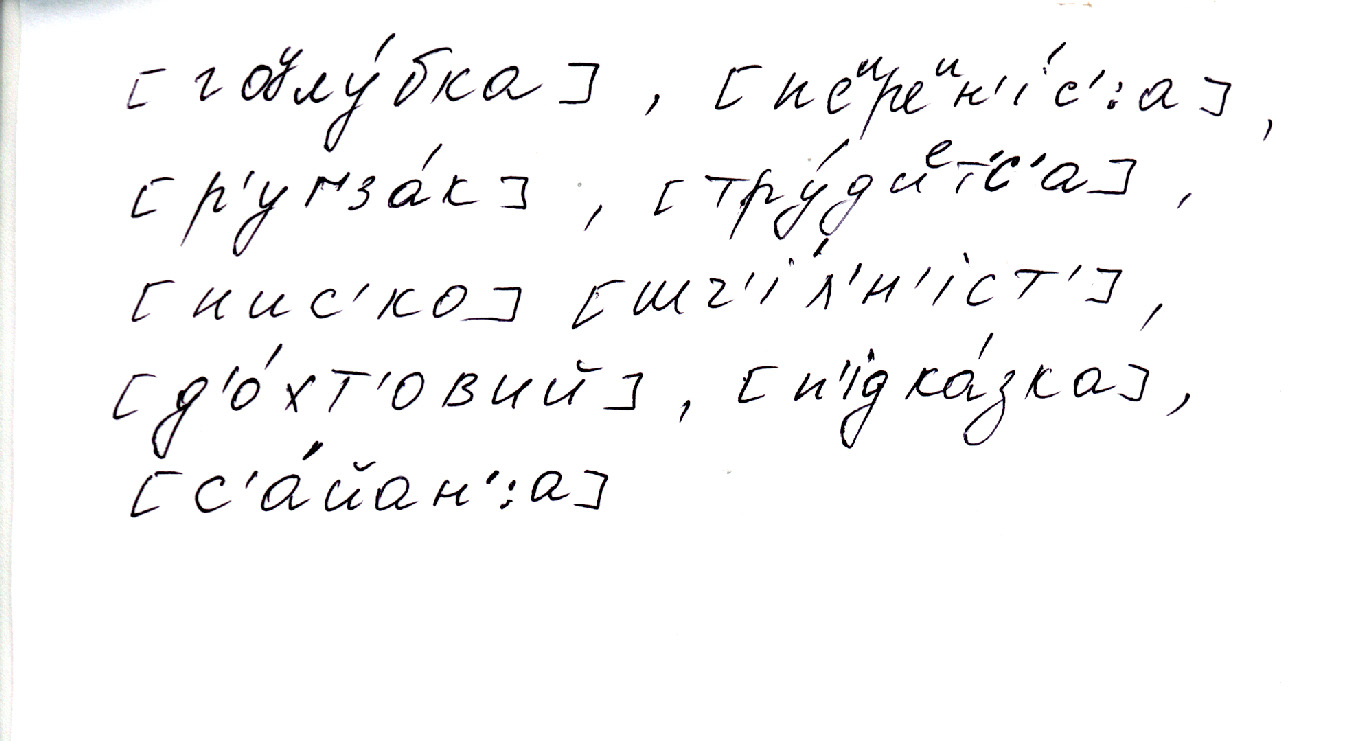 [гоʸлу́бка], [пеᵘреᵘн'і́с':а],
[р'угза́к], [тру́диᵉт'с'а],
[нис'ко] [шч'і́л'н'іст'],
[д'о́хт'овий], [п'ідка́зка],
[с'а́йан':а]